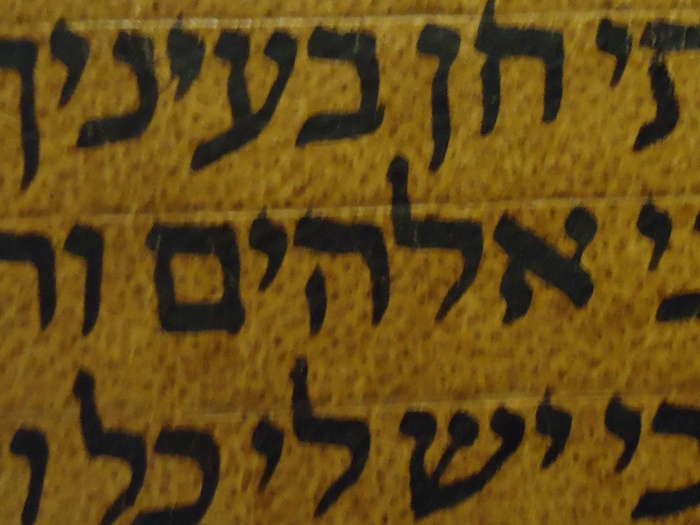 תי חן בעיניך
ני אלהים ות
כי יש לי כל ו